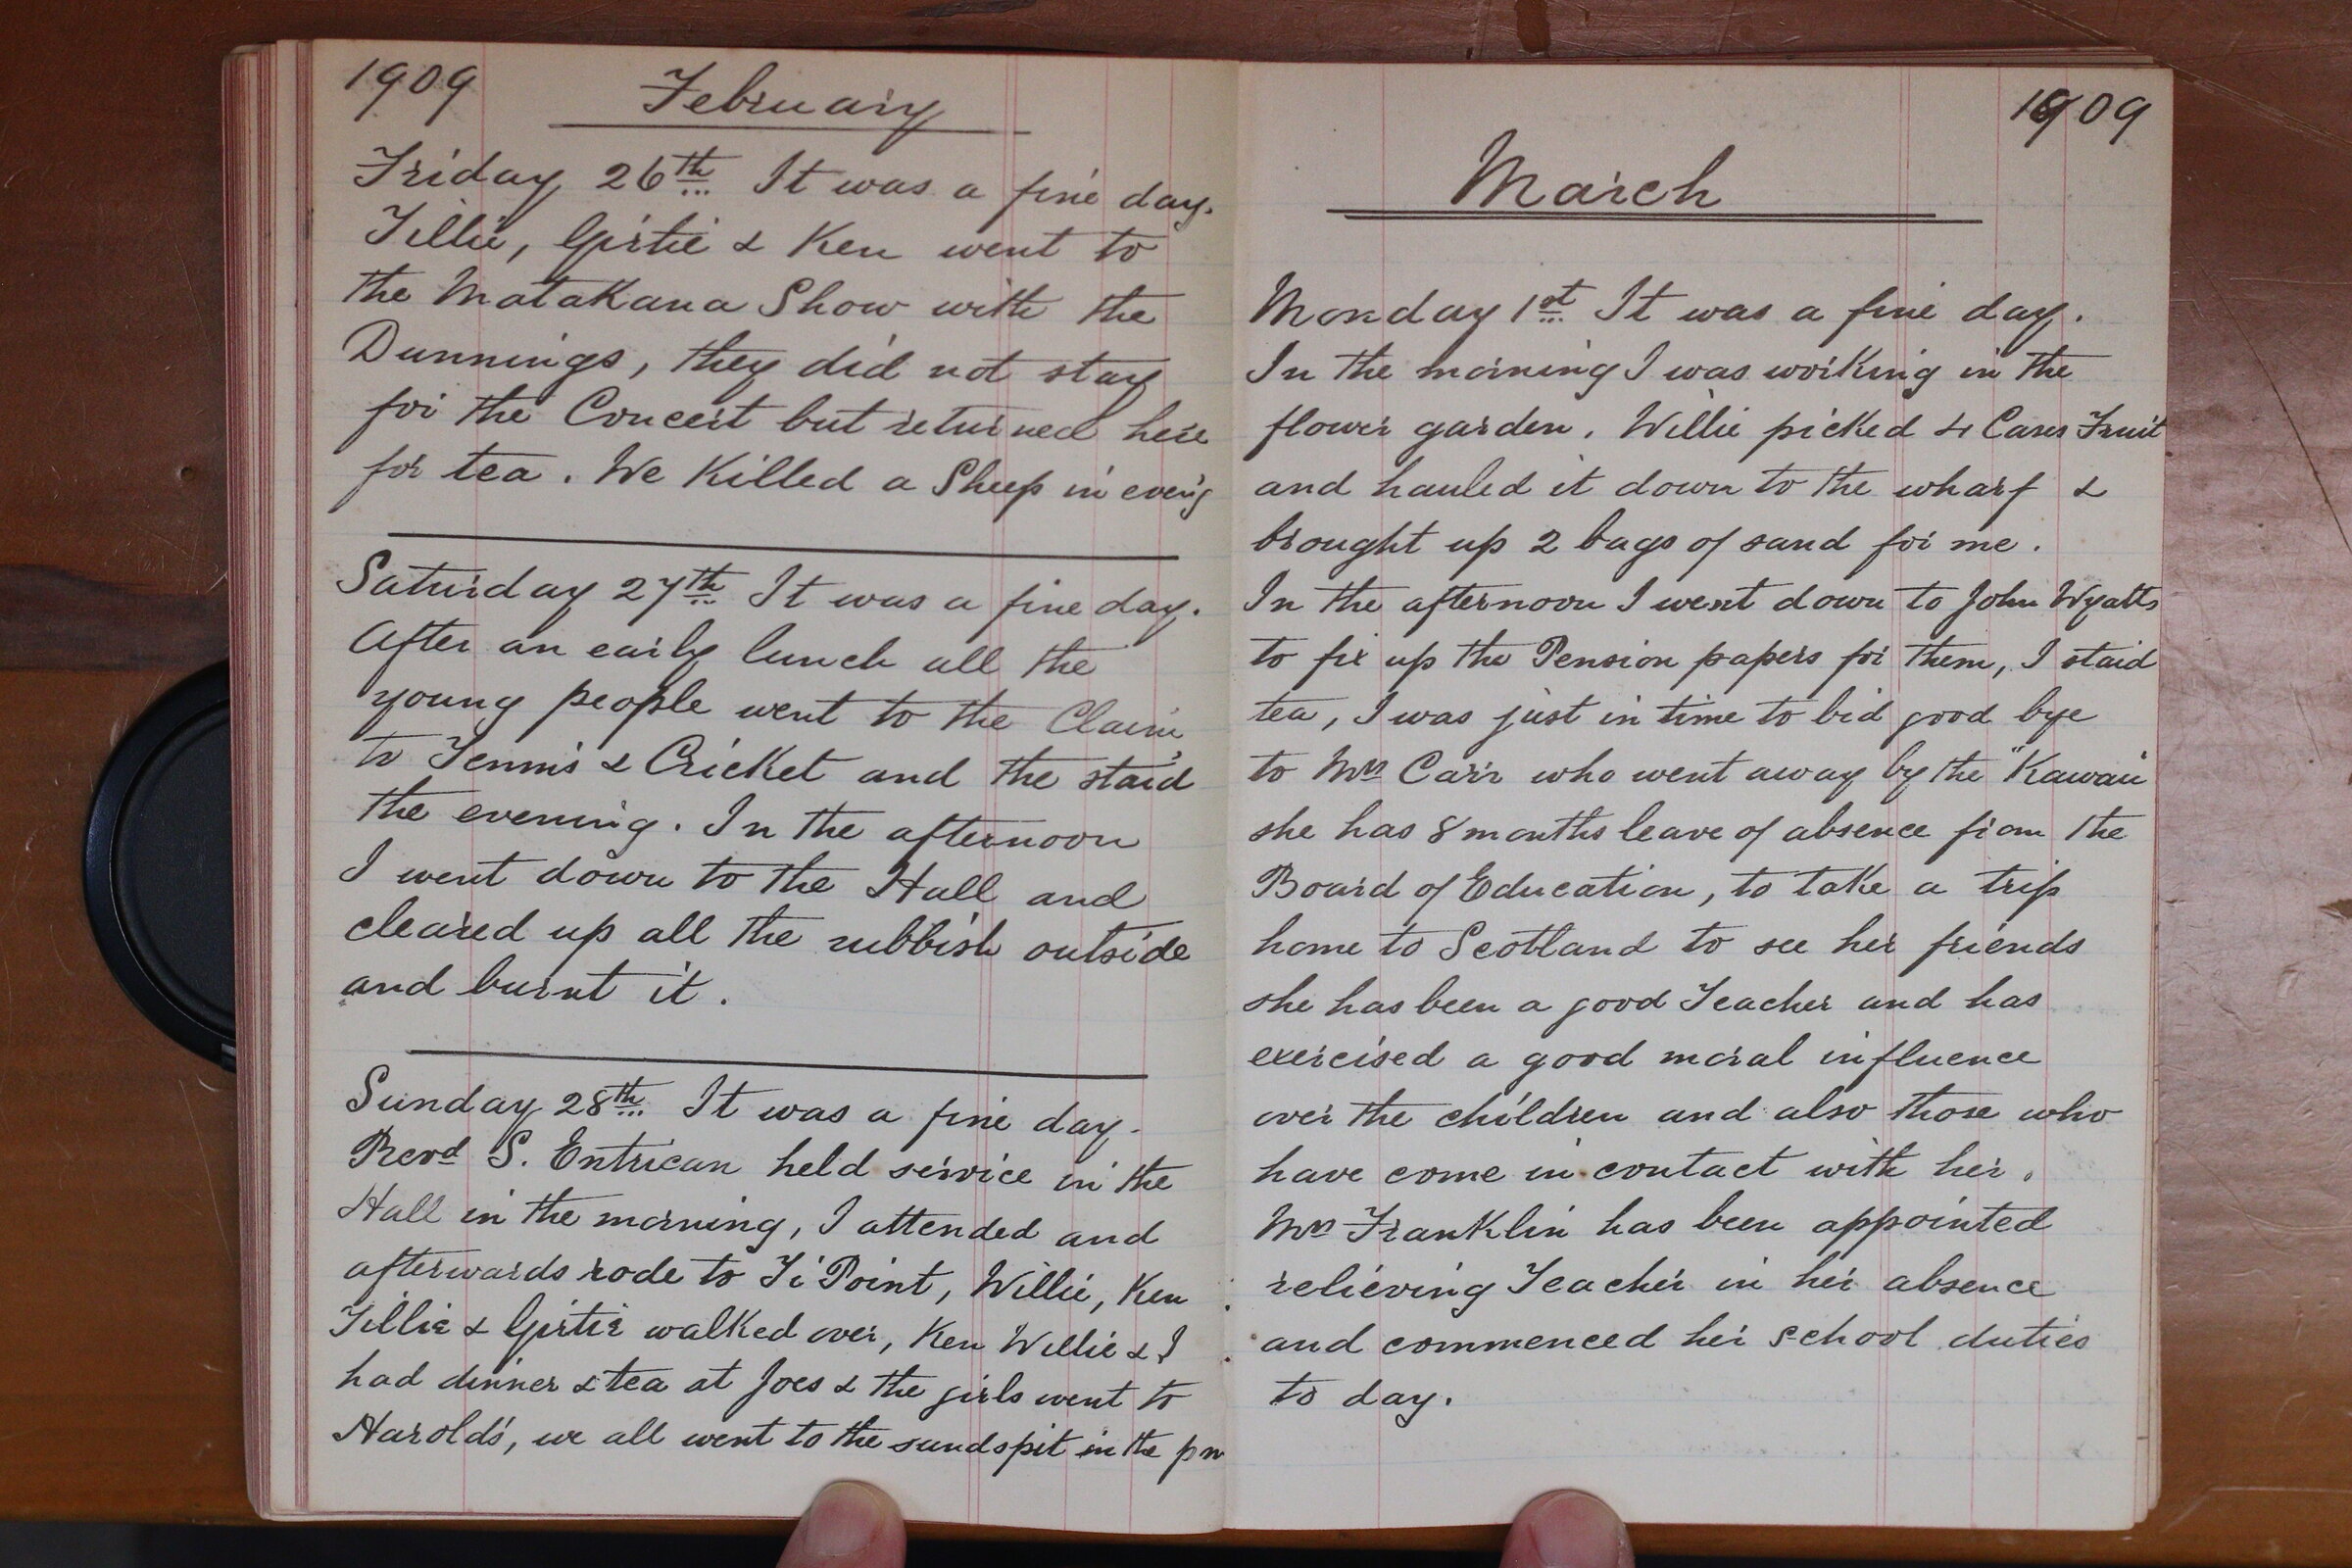 1909
February
Friday 26th It was a fine day.
Tillie, Girtie & Ken went to
the Matakana Show with the
Dunnings, they did not stay
for the Concert but returned here
for tea. We Killed a Sheep in eve'g
Saturday 27th It was a fine day.
After an early lunch all the
young people went to the Claim
to Tennis & Cricket and the staid
the evening. In the afternoon
I went down to the Hall and
cleared up all the rubbish outside
and burnt it.
Sunday 28th It was a fine day.
Revd S. Entrican held service in the
Hall in the morning, I attended and
afterwards rode to Ti Point, Willie, Ken
Tillie & Girtie walked over, Ken Willie & I
had dinner & tea at Joes & the girls went to
Harolds', we all went to the sandspit in the pm
1909
March
Monday 1st It was a fine day.
In the morning I was working in the
flower garden. Willie picked 4 Cases Fruit
and hauled it down to the wharf &
brought up 2 bags of sand for me.
In the afternoon I went down to John Wyatts
to fix up the Pension papers for them, I staid
tea, I was just in time to bid good bye
to Mrs Carr who went away by the "Kawau"
she has 8 months leave of absence from the
Board of Education, to take a trip
home to Scotland to see her friends
she has been a good Teacher and has
exercised a good moral influence
over the children and also those who
have come in contact with her.
Mrs Franklin has been appointed
relieving Teacher in her absence
and commenced her school duties
to day.